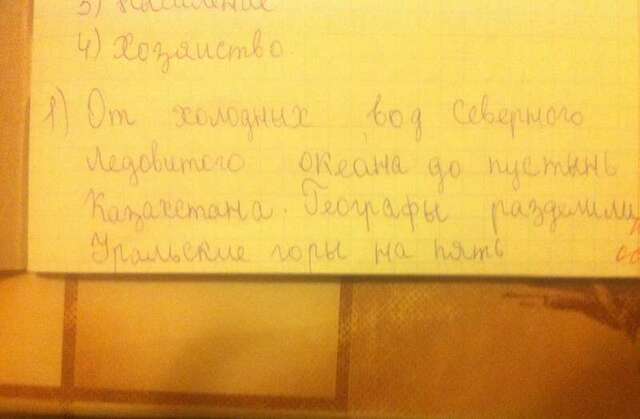 3) Население
4) Хозяйство.
1) От холодных вод Северного
Ледовитого океана до пустынь
Казахстана. Географы разделили
Уральские горы на пять